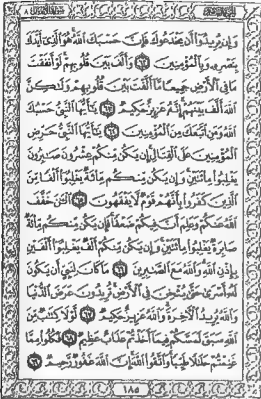 وَإِن يُرِيدُوٓا۟ أَن يَخْدَعُوكَ فَإِنَّ حَسْبَكَ ٱللَّهُ هُوَ ٱلَّذِىٓ أَيَّدَكَ
بِنَصْرِهِۦ وَبِٱلْمُؤْمِنِينَ ٦٢ وَأَلَّفَ بَيْنَ قُلُوبِهِمْ لَوْ أَنفَقْتَ
مَا فِى ٱلْأَرْضِ جَمِيعًا مَّآ أَلَّفْتَ بَيْنَ قُلُوبِهِمْ وَلَٰكِنَّ
ٱللَّهَ أَلَّفَ بَيْنَهُمْ إِنَّهُۥ عَزِيزٌ حَكِيمٌ ٦٣ يَٰٓأَيُّهَا ٱلنَّبِىُّ حَسْبُكَ
ٱللَّهُ وَمَنِ ٱتَّبَعَكَ مِنَ ٱلْمُؤْمِنِينَ ٦٤ يَٰٓأَيُّهَا ٱلنَّبِىُّ حَرِّضِ
ٱلْمُؤْمِنِينَ عَلَى ٱلْقِتَالِ إِن يَكُن مِّنكُمْ عِشْرُونَ صَٰبِرُونَ
يَغْلِبُوا۟ مِا۟ئَتَيْنِ وَإِن يَكُن مِّنكُم مِّا۟ئَةٌ يَغْلِبُوٓا۟ أَلْفًا مِّنَ
ٱلَّذِينَ كَفَرُوا۟ بِأَنَّهُمْ قَوْمٌ لَّا يَفْقَهُونَ ٦٥ ٱلْـَٰٔنَ خَفَّفَ
ٱللَّهُ عَنكُمْ وَعَلِمَ أَنَّ فِيكُمْ ضَعْفًا فَإِن يَكُن مِّنكُم مِّا۟ئَةٌ
صَابِرَةٌ يَغْلِبُوا۟ مِا۟ئَتَيْنِ وَإِن يَكُن مِّنكُمْ أَلْفٌ يَغْلِبُوٓا۟ أَلْفَيْنِ
بِإِذْنِ ٱللَّهِ وَٱللَّهُ مَعَ ٱلصَّٰبِرِينَ ٦٦ مَا كَانَ لِنَبِىٍّ أَن يَكُونَ
لَهُۥٓ أَسْرَىٰ حَتَّىٰ يُثْخِنَ فِى ٱلْأَرْضِ تُرِيدُونَ عَرَضَ ٱلدُّنْيَا
وَٱللَّهُ يُرِيدُ ٱلْءَاخِرَةَ وَٱللَّهُ عَزِيزٌ حَكِيمٌ ٦٧ لَّوْلَا كِتَٰبٌ مِّنَ
ٱللَّهِ سَبَقَ لَمَسَّكُمْ فِيمَآ أَخَذْتُمْ عَذَابٌ عَظِيمٌ ٦٨ فَكُلُوا۟ مِمَّا
غَنِمْتُمْ حَلَٰلًا طَيِّبًا وَٱتَّقُوا۟ ٱللَّهَ إِنَّ ٱللَّهَ غَفُورٌ رَّحِيمٌ ٦٩
١٨٥